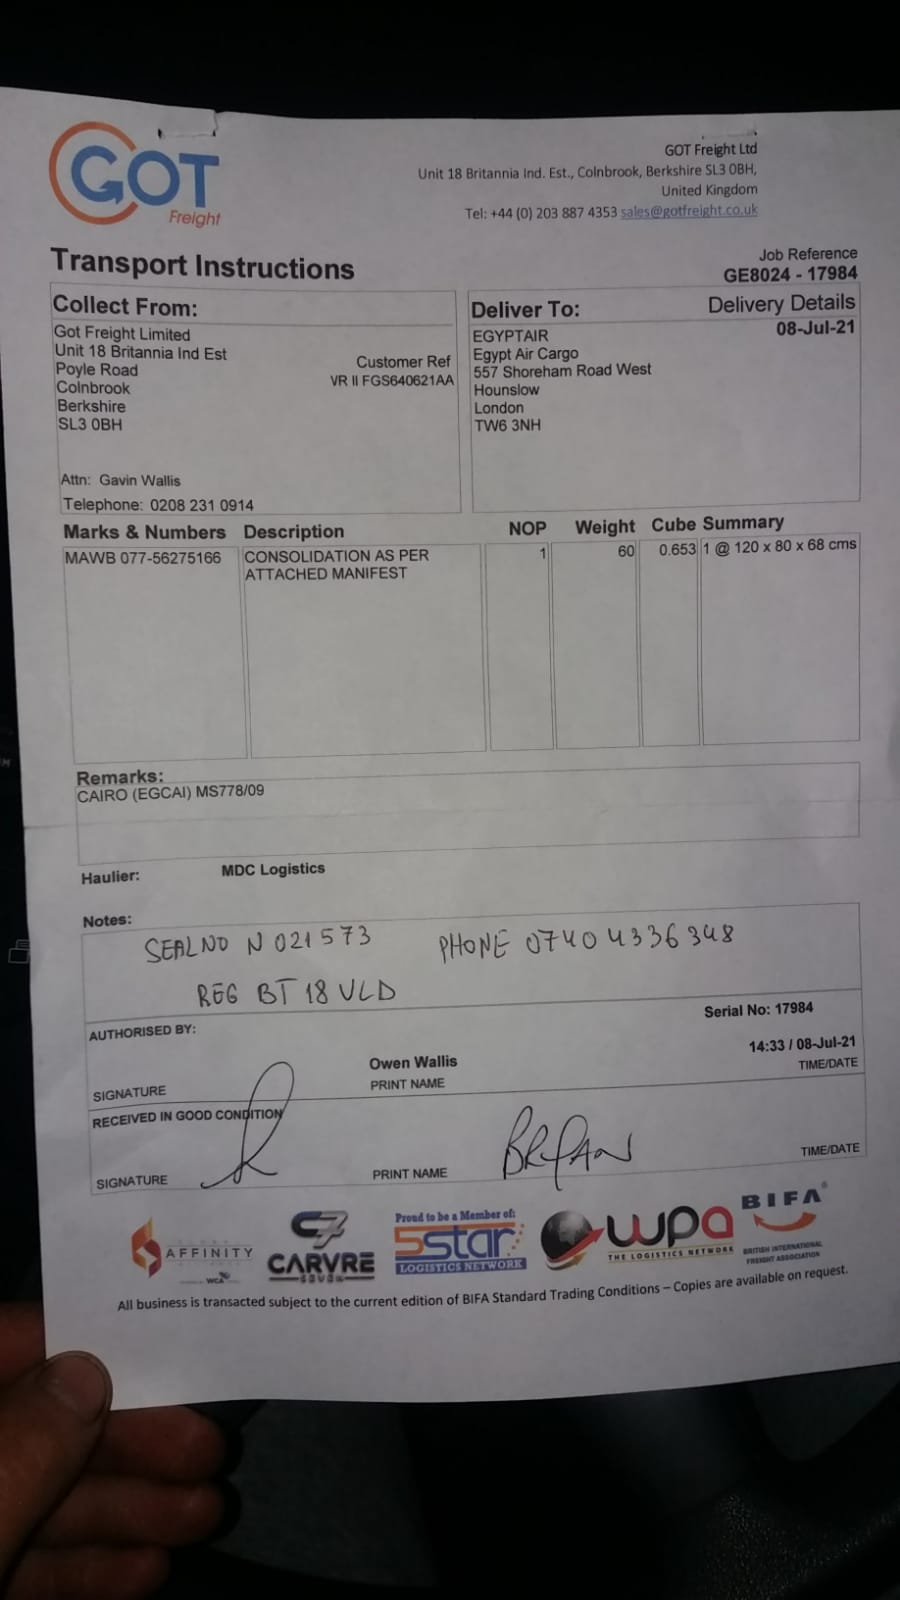 GOT
Freight
GOT Freight Ltd
Unit 18 Britannia Ind. Est., Colnbrook, Berkshire SL3 0BH,
United Kingdom
Tel: +44 (0) 203 887 4353 sales@gotfreight.co.uk
Transport Instructions
Job Reference
GE8024 - 17984
Collect From:
Got Freight Limited
Unit 18 Britannia Ind Est
Poyle Road
Colnbrook
Berkshire
SL3 0BH
Customer Ref
VR II FGS640621AA
Attn: Gavin Wallis
Telephone: 0208 231 0914
Deliver To:
Delivery Details
08-Jul-21
EGYPTAIR
Egypt Air Cargo
557 Shoreham Road West
Hounslow
London
TW6 3NH
Marks & Numbers Description NOP Weight Cube Summary
MAWB 077-56275166 CONSOLIDATION AS PER 1 60 0.653 1 @ 120 x 80 x 68 cms
ATTACHED MANIFEST
Remarks:
CAIRO (EGCAI) MS778/09
Haulier: MDC Logistics
Notes:
SEAL NO N 021573 PHONE 07404336348
REG BT 18 VLD
Serial No: 17984
AUTHORISED BY:
Owen Wallis 14:33 / 08-Jul-21
SIGNATURE PRINT NAME TIME/DATE
RECEIVED IN GOOD CONDITION
BRYAN
SIGNATURE PRINT NAME TIME/DATE
AFFINITY
WCA
C7
CARVRE
SEVEN
Proud to be a Member of:
5star
LOGISTICS NETWORK
wpa
THE LOGISTICS NETWORK
BIFA
BRITISH INTERNATIONAL
FREIGHT ASSOCIATION
All business is transacted subject to the current edition of BIFA Standard Trading Conditions – Copies are available on request.